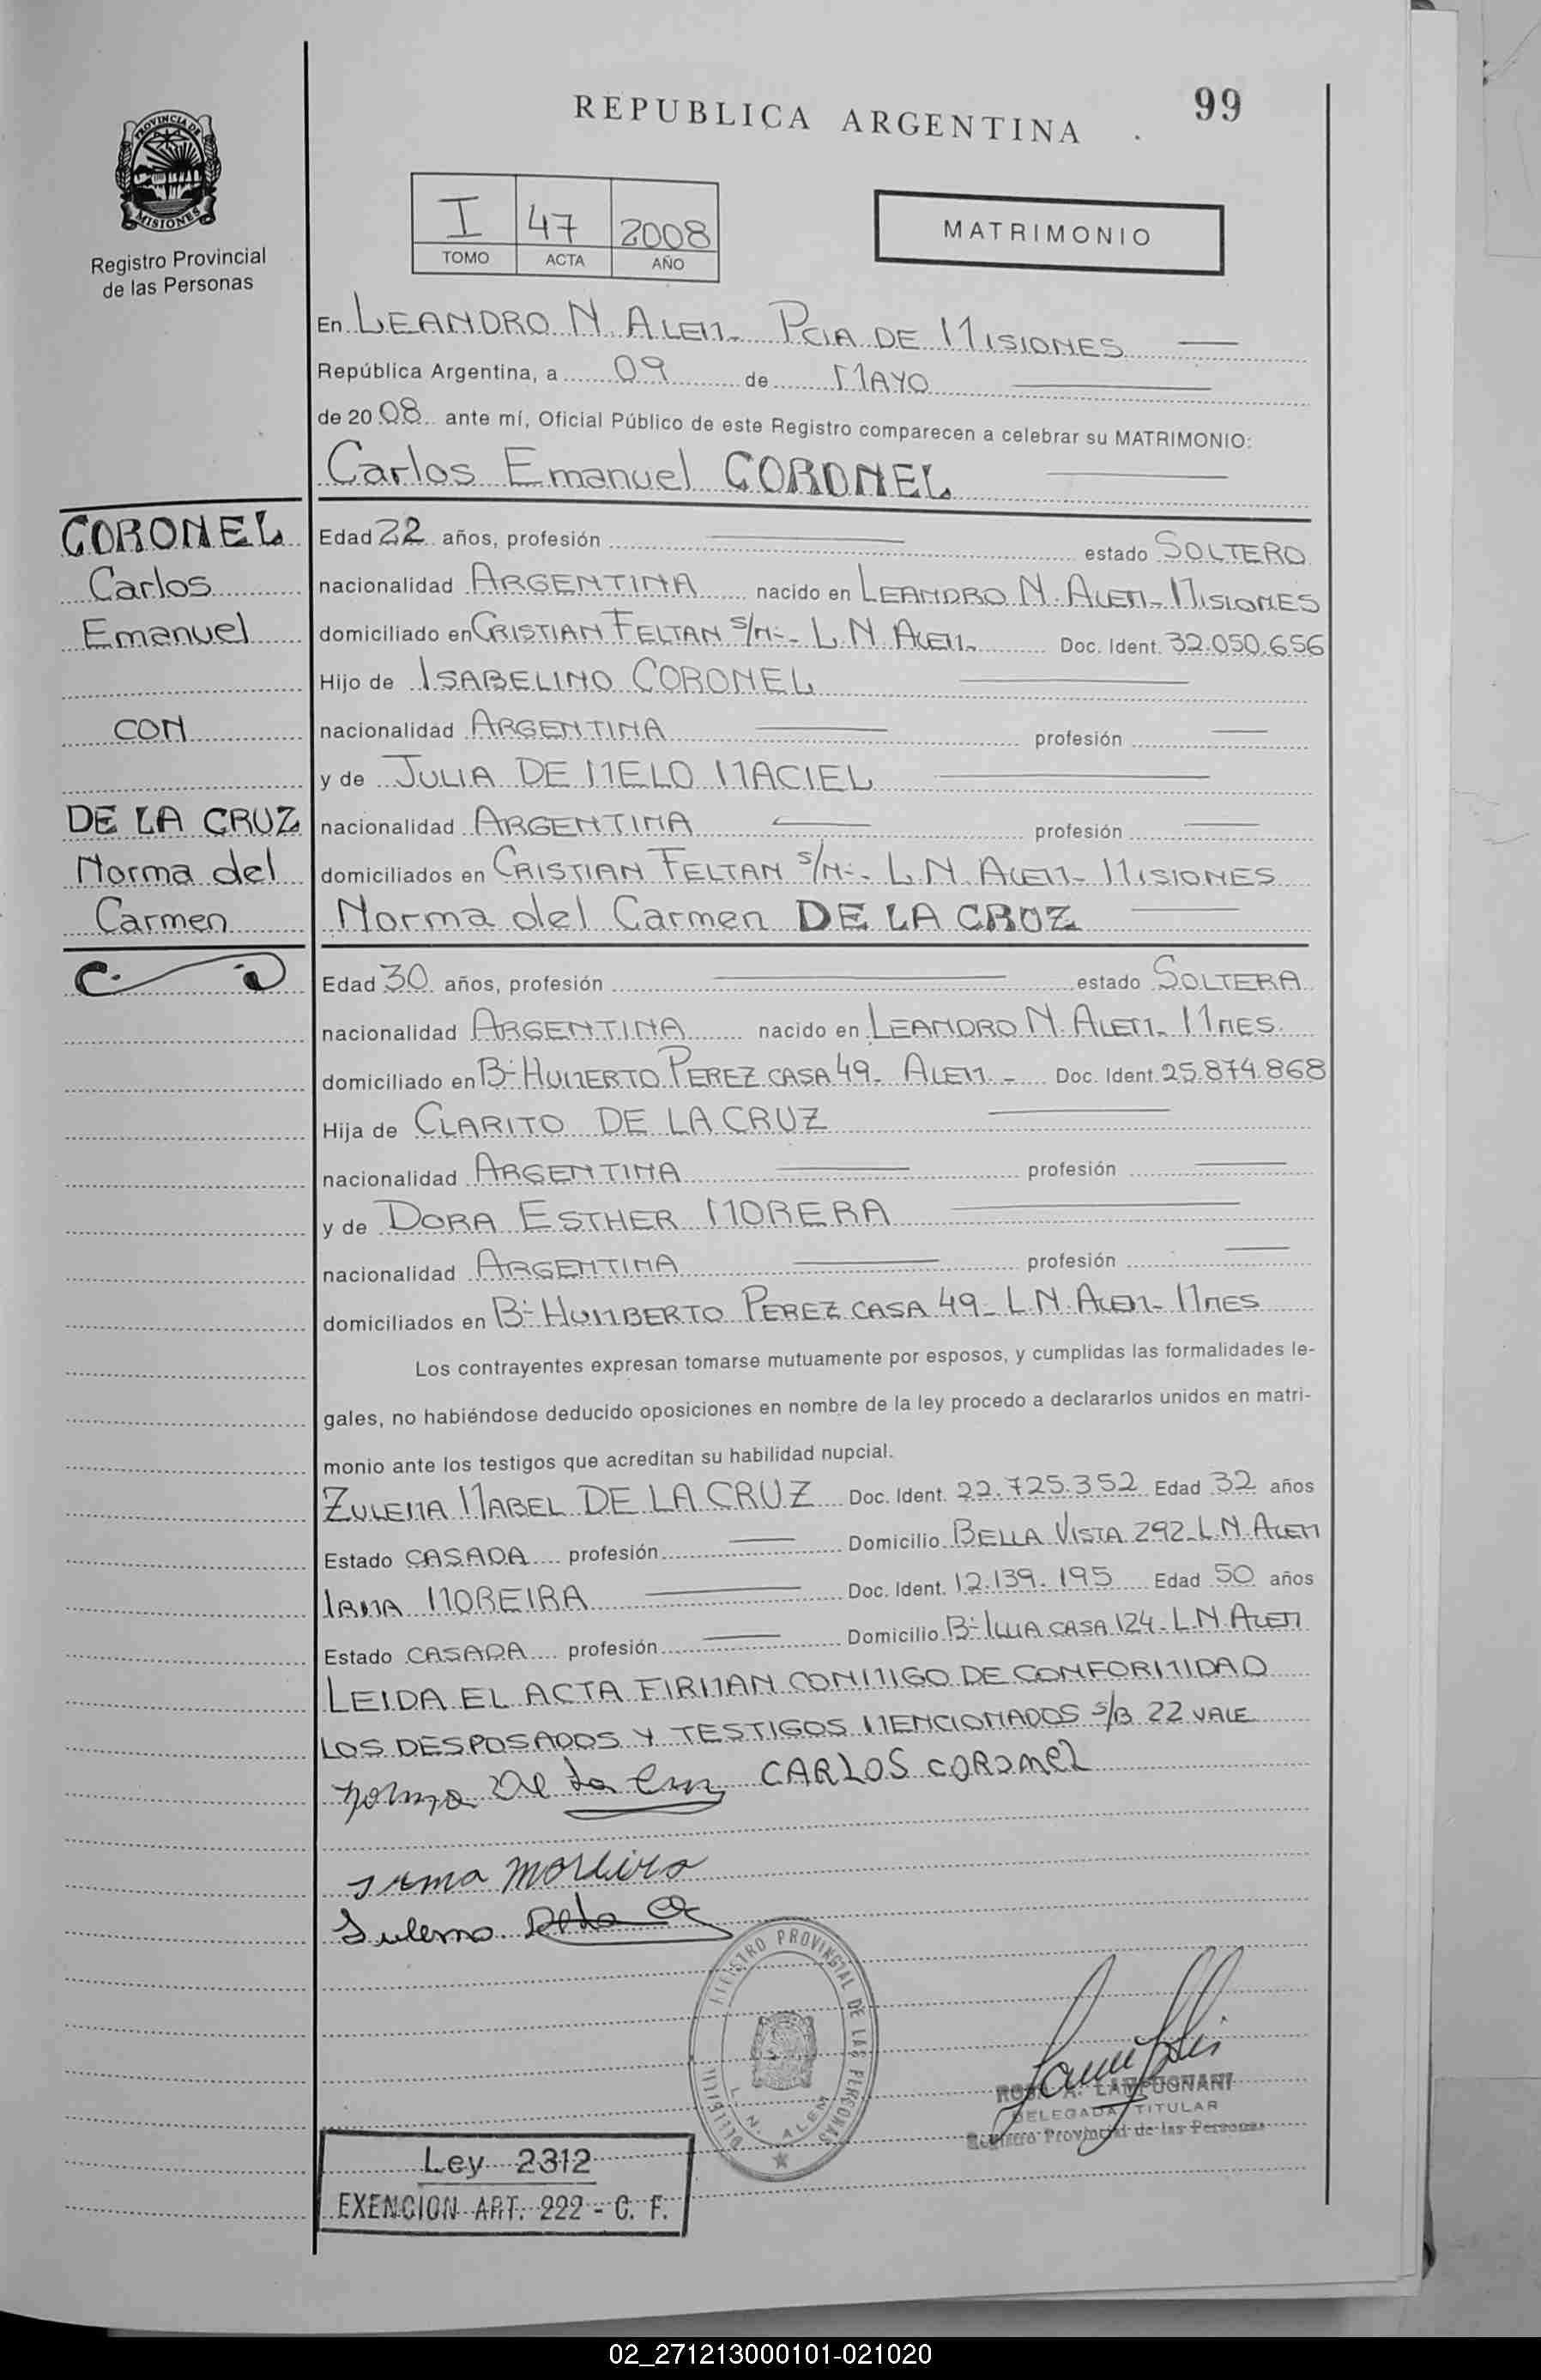 REPUBLICA ARGENTINA
99
PROVINCIA DE
MISIONES
Registro Provincial
de las Personas
I 47 2008
TOMO ACTA AÑO
MATRIMONIO
En LEANDRO N. ALEM - PCIA DE MISIONES
República Argentina, a 09 de MAYO
de 2008 ante mí, Oficial Público de este Registro comparecen a celebrar su MATRIMONIO:
Carlos Emanuel CORONEL
CORONEL
Carlos
Emanuel
CON
DE LA CRUZ
Norma del
Carmen
Edad 22 años, profesión estado SOLTERO
nacionalidad ARGENTINA nacido en LEANDRO N. ALEM - MISIONES
domiciliado en CRISTIAN FELTAN S/N - L. N. ALEM - Doc. Ident. 32.050.656
Hijo de ISABELINO CORONEL
nacionalidad ARGENTINA profesión
y de JULIA DE MELO MACIEL
nacionalidad ARGENTINA profesión
domiciliados en CRISTIAN FELTAN S/N - L. N. ALEM - MISIONES
Norma del Carmen DE LA CRUZ
Edad 30 años, profesión estado SOLTERA
nacionalidad ARGENTINA nacido en LEANDRO N. ALEM - MNES.
domiciliado en B- HUMERTO PEREZ CASA 49 - ALEM - Doc. Ident. 25.874.868
Hija de CLARITO DE LA CRUZ
nacionalidad ARGENTINA profesión
y de DORA ESTHER MORERA
nacionalidad ARGENTINA profesión
domiciliados en B- HUMBERTO PEREZ CASA 49 - L. N. ALEM - MNES
Los contrayentes expresan tomarse mutuamente por esposos, y cumplidas las formalidades le-
gales, no habiéndose deducido oposiciones en nombre de la ley procedo a declararlos unidos en matri-
monio ante los testigos que acreditan su habilidad nupcial.
ZULEMA MABEL DE LA CRUZ Doc. Ident. 22.725.352 Edad 32 años
Estado CASADA profesión Domicilio BELLA VISTA 292 - L. N. ALEM
IRMA MOREIRA Doc. Ident. 12.139.195 Edad 50 años
Estado CASADA profesión Domicilio B- ILLIA CASA 124 - L. N. ALEM
LEIDA EL ACTA FIRMAN CONMIGO DE CONFORMIDAD
LOS DESPOSADOS Y TESTIGOS MENCIONADOS S/B 22 VALE
Norma De la Cruz CARLOS CORONEL
Irma Moreira
Zulema De la
REGISTRO PROVINCIAL DE LAS PERSONAS
L. N. ALEM
ROSA A. LAMPUGNANI
DELEGADA TITULAR
Registro Provincial de las Personas
Ley 2312
EXENCION ART. 222 - C. F.
02_271213000101-021020